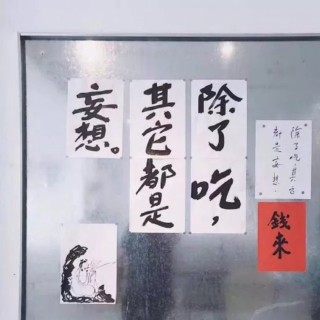 除了吃，
其它都是
妄想。
除了吃，其它
都是妄想。
钱来